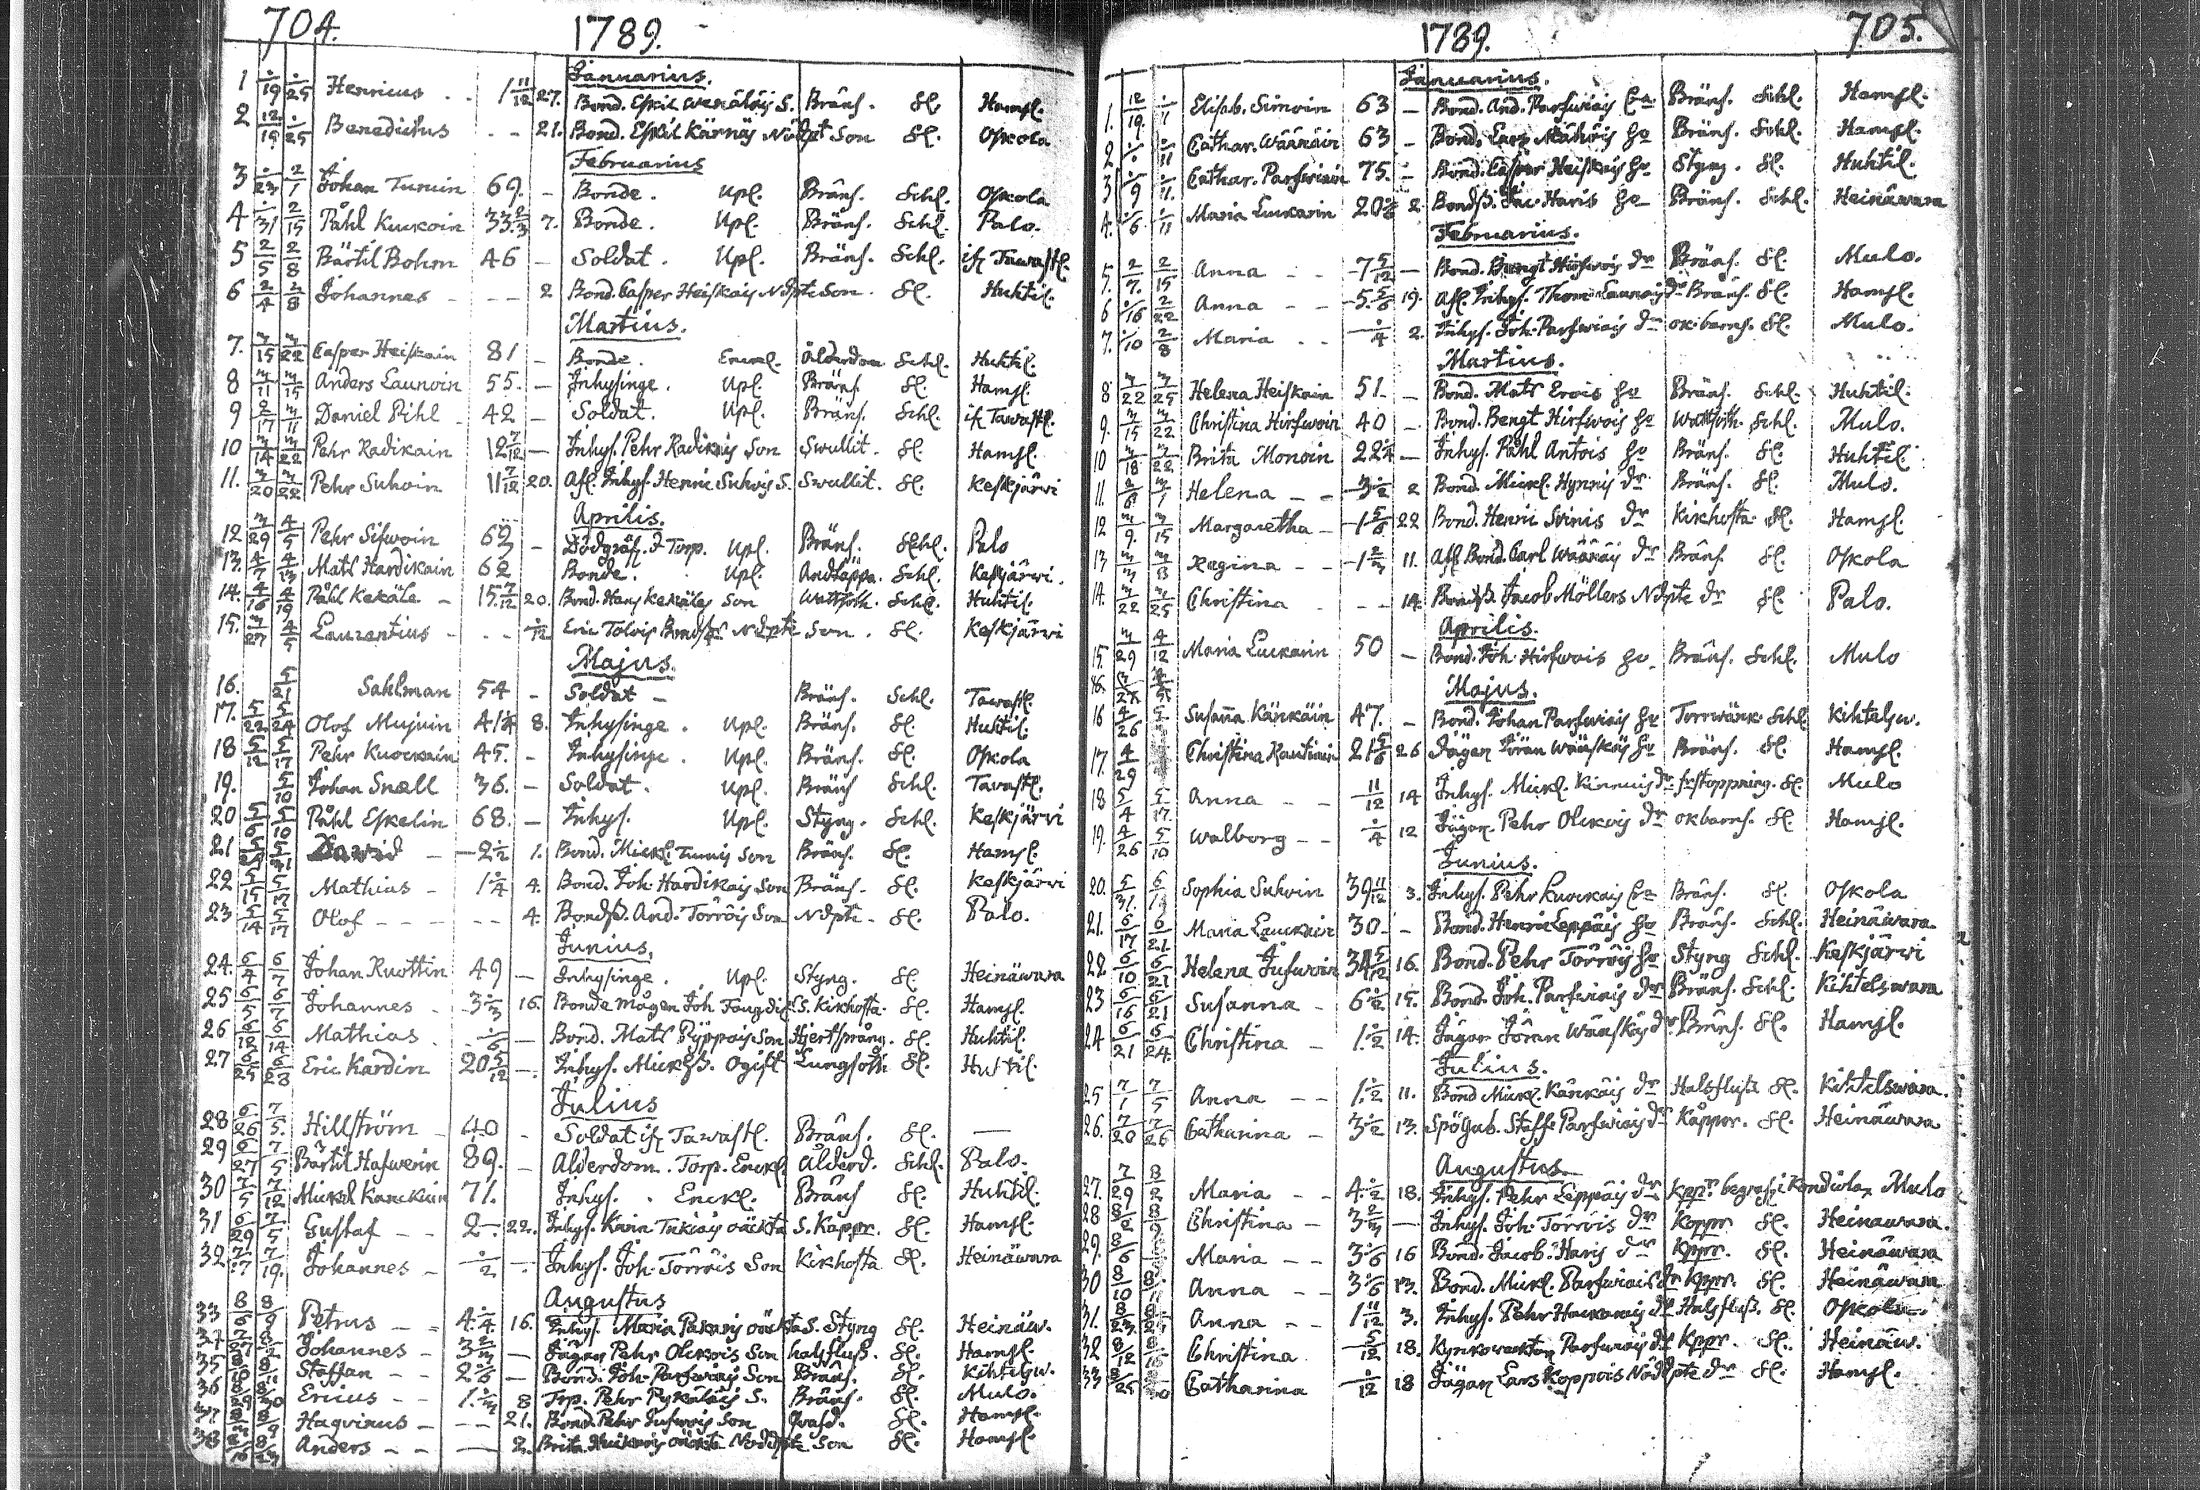 704. 1789.
Januarius.
1 ÷/19 ÷/25 Henricus . . 1 11/12 27. Bond. Eskil wenäläis S. Bräns. Sl. Hamsl.
2 12/19 ÷/25 Benedictus - - 21. Bond. Eskil Kärnäs Nödpt Son Sl. Oskola
Februarius
3 ÷/23 2/1 Johan Turuin 69. - Bonde. Upl. Bräns. Schl. Oskola
4 ÷/31 2/15 Påhl Kuckoin 33 2/3 7. Bonde. Upl. Bräns. Schl. Palo.
5 2/5 2/8 Bärtil Bohm 46 - Soldat. Upl. Bräns. Schl. if. Tawastl.
6 2/4 2/8 Johannes - - - 2 Bond. Casper Heiskais Ndpte son. Sl. Huhtil.
Martius.
7. 3/15 3/22 Casper Heiskain 81 - Bonde. Enckl. Ålderdom Schl. Huhtil.
8 3/11 3/15 Anders Launoin 55. - Inhysinge. Upl. Bräns. Sl. Hamsl.
9 2/17 3/11 Daniel Pihl 42 - Soldat. Upl. Bräns. Schl. if Tawastl.
10 3/14 3/22 Pehr Radikain 12 7/12 - Inhys. Pehr Radikais Son Swullit. Sl. Hamsl.
11. 3/20 3/22 Pehr Suhoin 11 7/12 20. Afl. Inhys. Henric Suhois S. Swullit. Sl. Keskjärvi
Aprilis.
12 3/29 4/5 Pehr Sifwoin 62 - Dödgräf. d. Torp. Upl. Bräns. Schl. Palo
13. 4/7 4/13 Mats Hardikain 62 - Bonde. Upl. Andtäppa. Schl. Keskjärvi.
14. 4/16 4/19 Påhl Kekäle - 15 7/12 20. Bond. Hans Kekäles Son Wattsoth. Schl. Huhtil.
15. 3/27 4/5 Laurentius - - - ÷/12 Eric Tolvis Bondß Ndpte Son. Sl. Keskjärvi
Majus.
16. 5/21 Sahlman 54 - Soldat - Bräns. Schl. Tawastl.
17. 5/22 5/24 Olof Mujuin 41 ÷/4 8. Inhysinge. Upl. Bräns. Sl. Huhtil.
18 5/12 5/17 Pehr Kuockain 45. - Inhysinge. Upl. Bräns. Sl. Oskola
19. 5/10 Johan Snell 36. - Soldat. Upl. Bräns Schl. Tavastl.
20 5/6 5/10 Påhl Eskelin 68. - Inhys. Upl. Styng. Schl. Keskjärvi
21 David - 2 ÷/2 1. Bond. Mickl. Turuis Son Bräns. Sl. Hamsl.
22 5/15 5/17 Mathias - 1 ÷/4 4. Bond. Joh. Hardikais Son Bräns. Sl. Keskjärvi
23 5/14 5/17 Olof - - - - - 4. Bondß. And. Törröis Son Ndpte - Sl. Palo.
Junius.
24. 6/4 6/7 Johan Ruottin 49 - Inhysinge. Upl. Styng. Sl. Heinäwara
25 6/5 6/7 Johannes - 3 ÷/3 16. Bonde mågen Joh. S. Kikhosta. Sl. Hamsl.
26 6/12 6/14 Mathias. - ÷/6 - Bond. Mats Pyppois Son Hjertsprång. Sl. Huhtil.
27 6/25 6/28 Eric Kardin 20 5/12 - Inhys. Micklß. Ogift Lungsoth Sl. Huhtil.
Julius
28 6/26 7/5 Hillström 40 - Soldat if Tawastl. Bräns. Sl. —
29 6/27 7/5 Bärtil Hafwerin 89. - Ålderdom. Torp. Enckl. Ålderd. Schl. Palo.
30 7/5 7/12 Mickel Kanckuin 71. - Inhys. . Enckl. Bräns Sl. Huhtil.
31 6/29 7/5 Gustaf - - 2 - 22. Inhys. Karin Tukiais oäckta S. Kappr. Sl. Hamsl.
32. 7/17 7/19. Johannes - ÷/2 - Inhys. Joh. Törröis Son Kikhosta Sl. Heinäwara
Augustus
33 8/6 8/9 Petrus - - 4 ÷/4 16. Inhys. Maria Pakaris oäckta S. Styng Sl. Heinäw.
34 Johannes - 3 2/3 - Jägar Pehr Olckois Son halsfluß. Sl. Hamsl.
35 Staffan - - 2 ÷/6 - Bond. Joh. Parfwiais Son Bräns. Sl. Kihtelsw.
36 Ericus - - 1 ÷/3 8 Trp. Pehr Pykäläis S. Bräns. Sl. Mulo.
37 Haqvinus - - - 21. Bond. Pehr Jufwois Son Qvafd. Sl. Hamsl.
38 Anders - - — 2. Brita oäckta Nöddpte Son Sl. Hamsl.
1789. 705.
Januarius.
1. 12/19 ÷/11 Elisab. Simoin 63 - Bond. And. Parfwiais Ea Bräns. Schl. Hamsl.
2 ÷/÷ ÷/11 Cathar. Wäänäin 63 - Bond. Lars Mähöis Ho Bräns. Schl. Hamsl.
3 ÷/9 ÷/11. Cathar. Parfwiain 75. - Bond. Casper Heiskais Ho Styng. Sl. Huhtil.
4. ÷/6 ÷/11 Maria Luckarin 20 ÷/6 2. Bondß. Jac. Haris Ho Bräns. Schl. Heinäwara
Februarius.
5. 2/7 2/15 Anna - - 7 5/12 - Bond. Bengt Hirfwois dr Bräns. Sl. Mulo.
6 ÷/16 2/22 Anna - - 5 5/6 19. Afl. Inhys. Thom. Launois dr Bräns. Sl. Hamsl.
7. ÷/10 2/8 Maria - - ÷/4 2. Inhys. Joh. Parfwiais dr ok. barns. Sl. Mulo.
Martius.
8 3/22 3/25 Helena Heiskain 51. - Bond. Mats Erois Ho Bräns. Schl. Huhtil.
9. 3/15 3/22 Christina Hirfwoin 40 - Bond. Bengt Hirfwois Ho Wattsoth. Schl. Mulo.
10 3/18 3/22 Brita Monoin 22 ÷/4 - Inhys. Påhl Antois Ho Bräns. Sl. Huhtil.
11. Helena - - 3 ÷/2 2 Bond. Mickl. Hynnis dr Bräns. Sl. Mulo.
12 3/9. 3/15 Margaretha - 1 5/6 22 Bond. Henric Svinis dr Kikhosta. Sl. Hamsl.
13 3/3 3/8 Regina - - 1 2/3 11. Afl. Bond. Carl Wääräis dr Bräns Sl. Oskola
14. 3/22 3/25 Christina - - - 14. Bondß. Jacob Möllers Ndpte dr Sl. Palo.
Aprilis.
15. 3/29 4/12 Maria Luckarin 50 - Bond. Joh. Hirfwois Ho Bräns. Schl. Mulo
Majus.
16 4/26 Susanna Känkäin 47. - Bond. Johan Parfwiais Ho Torrwärk. Schl. Kihtelsw.
17. 4/29 Christina Rautiain 21 5/6 26 Jägar Jöran Wänskäs Ho Bräns. Sl. Hamsl.
18 5/4 5/17 Anna - - 11/12 14 Inhys. Mickl. Kinnuis dr frstoppning. Sl. Mulo
19. 4/26 5/10 Walborg - - ÷/4 12 Jägar. Pehr Olckois dr ok barns. Sl. Hamsl.
Junius.
20. 5/31. Sophia Suhoin 39 11/12 3. Inhys. Pehr Kuockais Ea Bräns. Sl. Oskola
21. 6/17 6/21 Maria Luckain 30. - Bond. Henric Leppäis Ho Bräns. Schl. Heinäwara
22. 6/10 6/21 Helena Jufwoin 34 5/12 16. Bond. Pehr Törröis Ho Styng Schl. Keskjärvi
23 6/16 6/21 Susanna - 6 ÷/2 15. Bond. Joh. Parfwiais dr Bräns. Schl. Kihtelswara
24 6/21 6/24. Christina - 1 ÷/2 14. Jägar Jöran Wänskäs dr Bräns. Sl. Hamsl.
Julius.
25 7/1 7/5 Anna - - 1 ÷/2 11. Bond. Mickl. Känkäis dr Halsfluß Sl. Kihtelswara.
26. 7/20 7/26 Catharina - 3 ÷/2 13. Spögub. Staff. Parfwiais dr Kåppor. Sl. Heinäwara
Augustus
27. 7/29 8/2 Maria - - 4 ÷/2 18. Inhys. Pehr Leppäis dr Kppr. begrafs i Kondiolax Mulo
28 8/2 8/9 Christina - 3 2/3 — Inhys. Joh. Törröis dr Koppr Sl. Heinäwara.
29. 8/6 Maria - - 3 ÷/6 16 Bond. Jacob Haris dr Kppr. Sl. Heinäwara
30 8/10 Anna - - 3 ÷/6 13. Bond. Mickl. Parfwiais dr Kppr. Sl. Heinäwara
31. 8/23 Anna - - 1 11/12 3. Inhys. Pehr Hackarais dr Halsfluß. Sl. Oskola.
32 8/12 Christina 5/12 18. Parfwiais dr Kppr. Sl. Heinäw.
33 8/25 Catharina ÷/12 18 Jägar Lars Koppois Nöddpte dr Sl. Hamsl.